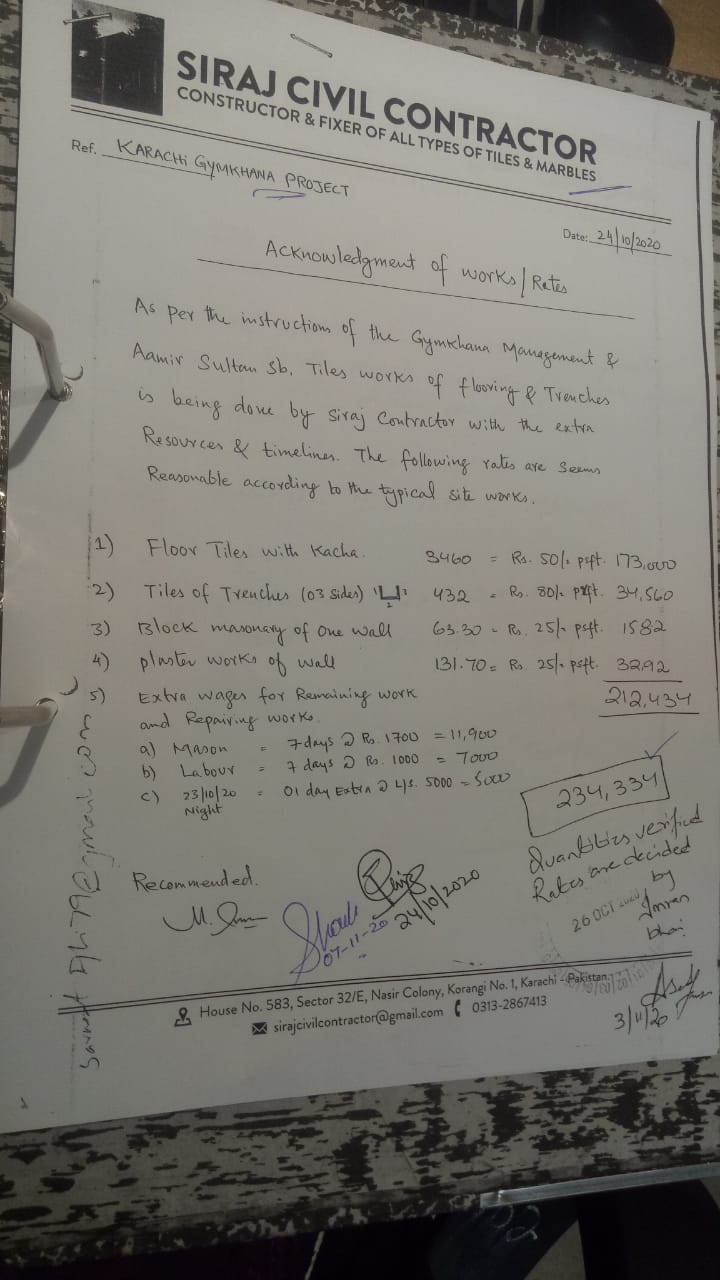 SIRAJ CIVIL CONTRACTOR
CONSTRUCTOR & FIXER OF ALL TYPES OF TILES & MARBLES
Ref. KARACHI GYMKHANA PROJECT
Date: 24/10/2020
Acknowledgment of works/Rates
As per the instruction of the Gymkhana Management &
Aamir Sultan Sb, Tiles works of flooring & Trenches
is being done by Siraj Contractor with the extra
Resources & timelines. The following rates are seems
Reasonable according to the typical site works.
1) Floor Tiles with Kacha. 3460 = Rs. 50/- psft. 173,000
2) Tiles of Trenches (03 sides) 432 = Rs. 80/- psft. 34,560
3) Block masonary of one wall 63.30 = Rs. 25/- psft. 1582
4) plaster works of wall 131.70 = Rs. 25/- psft. 3292
212,434
5) Extra wages for Remaining work
and Repairing works.
a) Mason = 7 days @ Rs. 1700 = 11,900
b) Labour = 7 days @ Rs. 1000 = 7000
c) 23/10/20 = 01 day Extra @ L/S. 5000 = 5000
Night
234,334
Quantities verified
Rates are decided
by
Imran
bhai
26 OCT
Recommended.
24/10/2020
07-11-20
3/11/20
House No. 583, Sector 32/E, Nasir Colony, Korangi No. 1, Karachi - Pakistan.
sirajcivilcontractor@gmail.com 0313-2867413